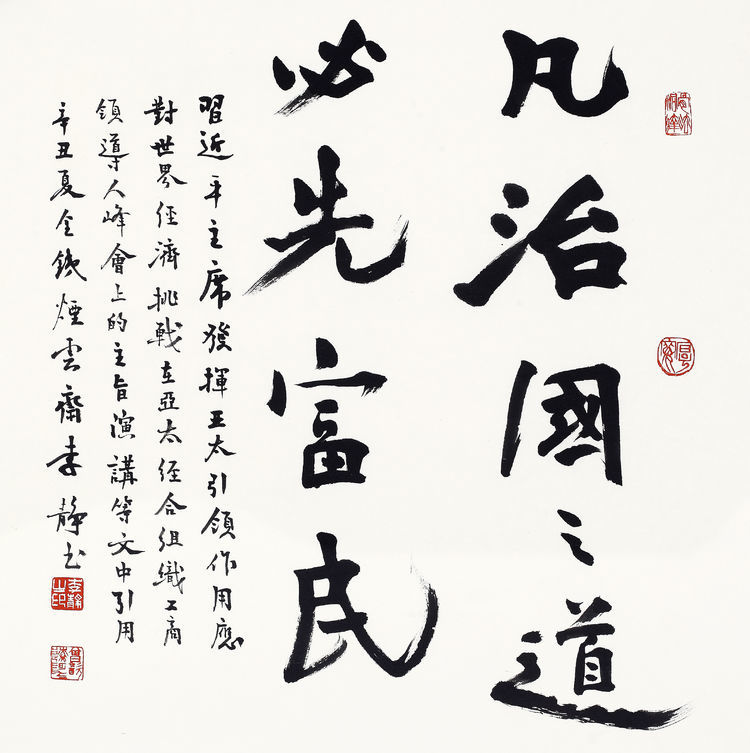 凡治國之道
必先富民
習近平主席發揮亞太引領作用應
對世界经濟挑戰在亞太经合组織工商
領導人峰會上的主旨演講等文中引用
辛丑夏煙雲齋李静书
李静之印